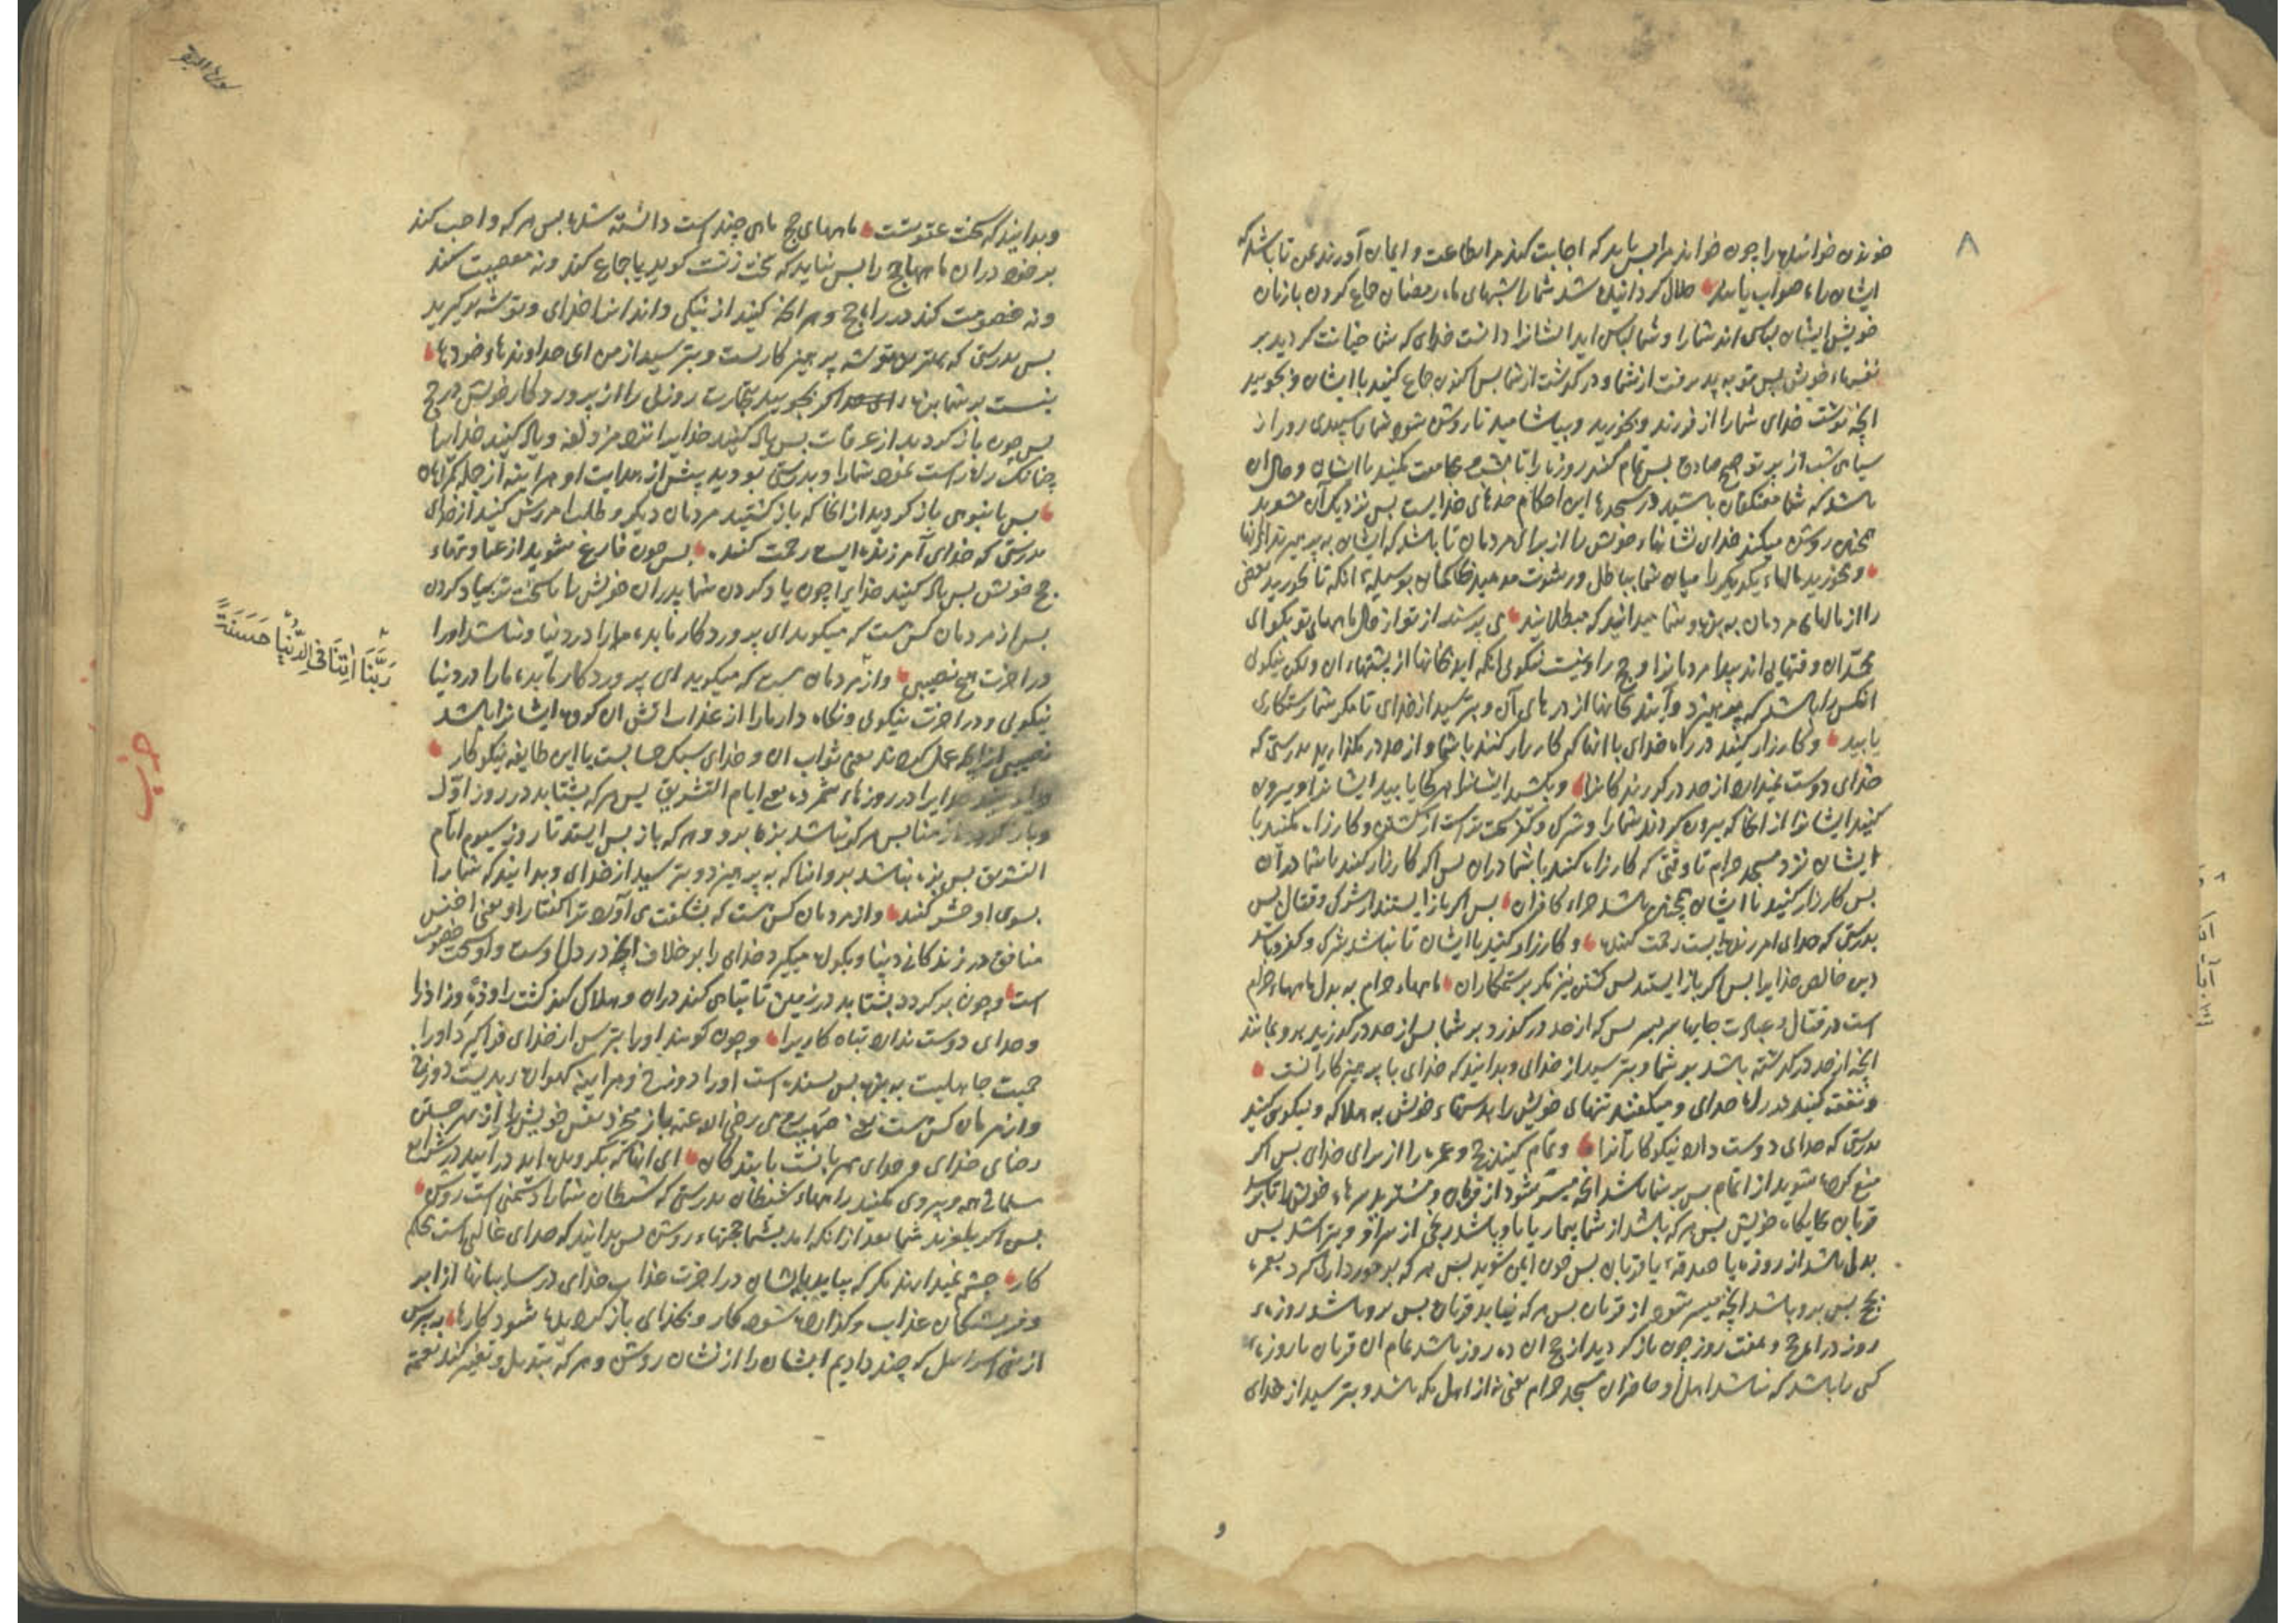 ۸
خوندن خوانندها را چون خواند مرا پس باید که اجابت کنند مرا بطاعت و ایمان آورند بمن تا باشد که
ایشان راه صواب یابند حلال گردانیده شد شما را شبهای ماه رمضان جماع کردن بازنان
خویش ایشان لباس اند شما را و شما لباس اید ایشانرا دانست خدای که شما خیانت کردید بر
نفسهاء خویش پس توبه پذیرفت از شما و در گذشت از شما پس اکنون جماع کنید با ایشان و بجویید
انچه نوشت خدای شما را از فرزند و بخورید و بیاشامید تا روشن شود شما را سپیدی روز از
سیاهی شب از صبح صادق پس تمام کنید روزه را تا بشب و مجامعت مکنید با ایشان و حال ان
باشد که شما معتکفان باشید در مسجدها این احکام حدهای خدایست پس نزدیک آن مشوید
همچنین روشن میکند خدای نشانهاء خویش را از برای مردمان تا باشد که ایشان به پرهیزند
و مخورید مالهاء یکدیگر را میان شما بباطل و رشوت مدهید حاکمان بوسیله انکه تا بخورید بعضی
را از مالهای مردمان به بزه و شما میدانید که مبطلانید می پرسند از تو از حال ماههای نو بگو ای
محمد ان وقتهایی اند مردمانرا و حج را و نیست نیکویی انکه اید خانها از پشتهاء ان و لکن نیکویی
انکس را باشد که بپرهیزد و آیند خانها از درهای آن و بترسید از خدای تا مگر شما رستگاری
یابید و کارزار کنید در راه خدای با انها که کارزار کنند با شما و از حد در مگذارید بدرستی که
خدای دوست نمیدارد از حد در گذرندکانرا و بکشید ایشانرا هر کجا یابید ایشانرا و بیرون
کنید ایشانرا از انجا که بیرون کردند شما را و شرک و کفر سخت تر است از کشتن و کارزار مکنید با
ایشان نزد مسجد حرام تا وقتی که کارزار کنند با شما دران پس اگر کارزار کنند با شما در آن
پس کارزار کنید با ایشان همچنین باشد جزاء کافران پس اگر باز ایستند از شرک و قتال پس
بدرستی که خدای امرزنده است رحمت کننده و کارزار کنید با ایشان تا نباشد شرک و کفر و باشد
دین خالص خدایرا پس اگر باز ایستند پس کشتن نیز مگر بر ستمکاران ماههاء حرام به بدل ماههاء حرام
است در قتال پس که از حد در گذرد بر شما پس از حد در گذرید برو بمانند
انچه از حد در گذشته باشد بر شما و بترسید از خدای و بدانید که خدای با پرهیزکارانست
و نفقه کنید در راه خدای و میفکنید تنهای خویش را بدستهاء خویش به هلاکه و نیکویی کنید
بدرستی که خدای دوست دارد نیکو کارانرا و تمام کنید حج و عمره را از برای خدای پس اگر
منع کرده شوید از اتمام پس بر شما باشد انچه میسر شود از قربان و مشترید سرهاء خویش را تا برسد
قربان بجایگاه خویش پس هر که باشد از شما بیمار یا باو باشد رنجی از سر او و بتراشد پس
بدل باشد از روزه یا صدقه یا قربان پس چون ایمن شوید پس هر که برخورداری گرد بعمره
بحج پس برو باشد انچه میسر شود از قربان پس هر که نیابد قربان پس برو باشد روزه
روز در حج و هفت روز چون باز گردید از حج ان ده روز باشد تمام ان قربان یا روزه
کسی را باشد که نباشد اهل او حاضران مسجد حرام یعنی نه از اهل مکه باشد و بترسید از خدای
و
سورة البقر
و بدانید که سخت عقوبتست ماههای حج ماهی چند است دانسته شده پس هر که واجب کند
بر خود دران ماهها حج را پس نباید که سخن زشت گوید یا جماع کند و نه معصیت کند
و نه خصومت کند در راه حج و هر انچه کنید از نیکی داند انرا خدای و توشه بر گیرید
پس بدرستی که بهترین توشه پرهیزکاریست و بترسید از من ای خداوندهاء خردها
نیست بر شما بزه اگر بجویید بتجارت روزی را از پروردگار خویش در حج
پس چون باز گردید از عرفات پس یاد کنید خدایرا نزد مزدلفه و یاد کنید خدایرا
چنانک راه راست نمود شما را و بدرستی بودید پیش از هدایت او هر اینه از جمله گمراهان
پس بانبوهی باز گردید از انجا که باز گشتند مردمان دیگر و طلب امرزش کنید از خدای
بدرستی که خدای آمرزنده است رحمت کننده پس چون فارغ شوید از عبادتهاء
حج خویش پس یاد کنید خدایرا چون یاد کردن شما پدران خویش را یا سخت تر بیاد کردن
پس از مردمان کس هست که میگوید ای پروردگار ما بده ما را در دنیا و نباشد او را
در اخرت هیچ نصیبی و از مردمان هست که میگوید ای پروردگار ما بده ما را در دنیا
نیکویی و در اخرت نیکویی و نگاه دار ما را از عذاب اتش ان گروه ایشانرا باشد
نصیبی از انچه عمل کردند یعنی ثواب ان و خدای سبک حسابست با این طایفه نیکو کار
خدایرا در روزهاء شمرده یعنی ایام التشریق پس هر که بشتابد در روز اول
و باز گردد از منا پس هر کو نباشد بزه برو و هر که باز پس ایستد تا روز سیوم ایام
التشریق پس بزه نباشد برو انها که به پرهیزد و بترسید از خدای و بدانید که شما را
بسوی او حشر کنند و از مردمان کس هست که بشگفت می آورد ترا گفتار او یعنی اخنس
منافق در زندگانی دنیا و بگواه میگیرد خدای را بر خلاف انچه در دل اوست و او سخت خصومت
است و چون برگردد بشتابد در زمین تا تباهی کند دران و هلاک کند کشت را و نژاد را
و خدای دوست ندارد تباه کاریرا و چون گویند او را بترس از خدای فراگیرد او را
حمیت جاهلیت به بزه پس بسنده است او را دوزخ و هر اینه گهواره بدیست دوزخ
و از مردمان کس هست یعنی صهیب رومی رضی الله عنه باز میخرد نفس خویش را از بهر جستن
رضای خدای و خدای مهربانست با بندگان ای انها که بگرویده اید در ایید در شرایع
مسلمانی همه و پیروی مکنید راههاء شیطان بدرستی که شیطان شما را دشمنی است روشن
پس اگر بلغزید شما بعد از انکه امد بشما حجتهاء روشن پس بدانید که خدای غالبی است محکم
کار چشم نمیدارند مگر که بیاید بایشان در اخرت عذاب خدای در سایبانها از ابر
و فرشتگان عذاب و گذارده شود کار و بخدای باز گردیده شود کارها بپرس
از بنی اسراییل که چند دادیم ایشان را از نشان روشن و هر که تبدیل و تغییر کند نعمت
رَبَّنَا اٰتِنَا فِی الدُّنْیَا حَسَنَةً
حزب